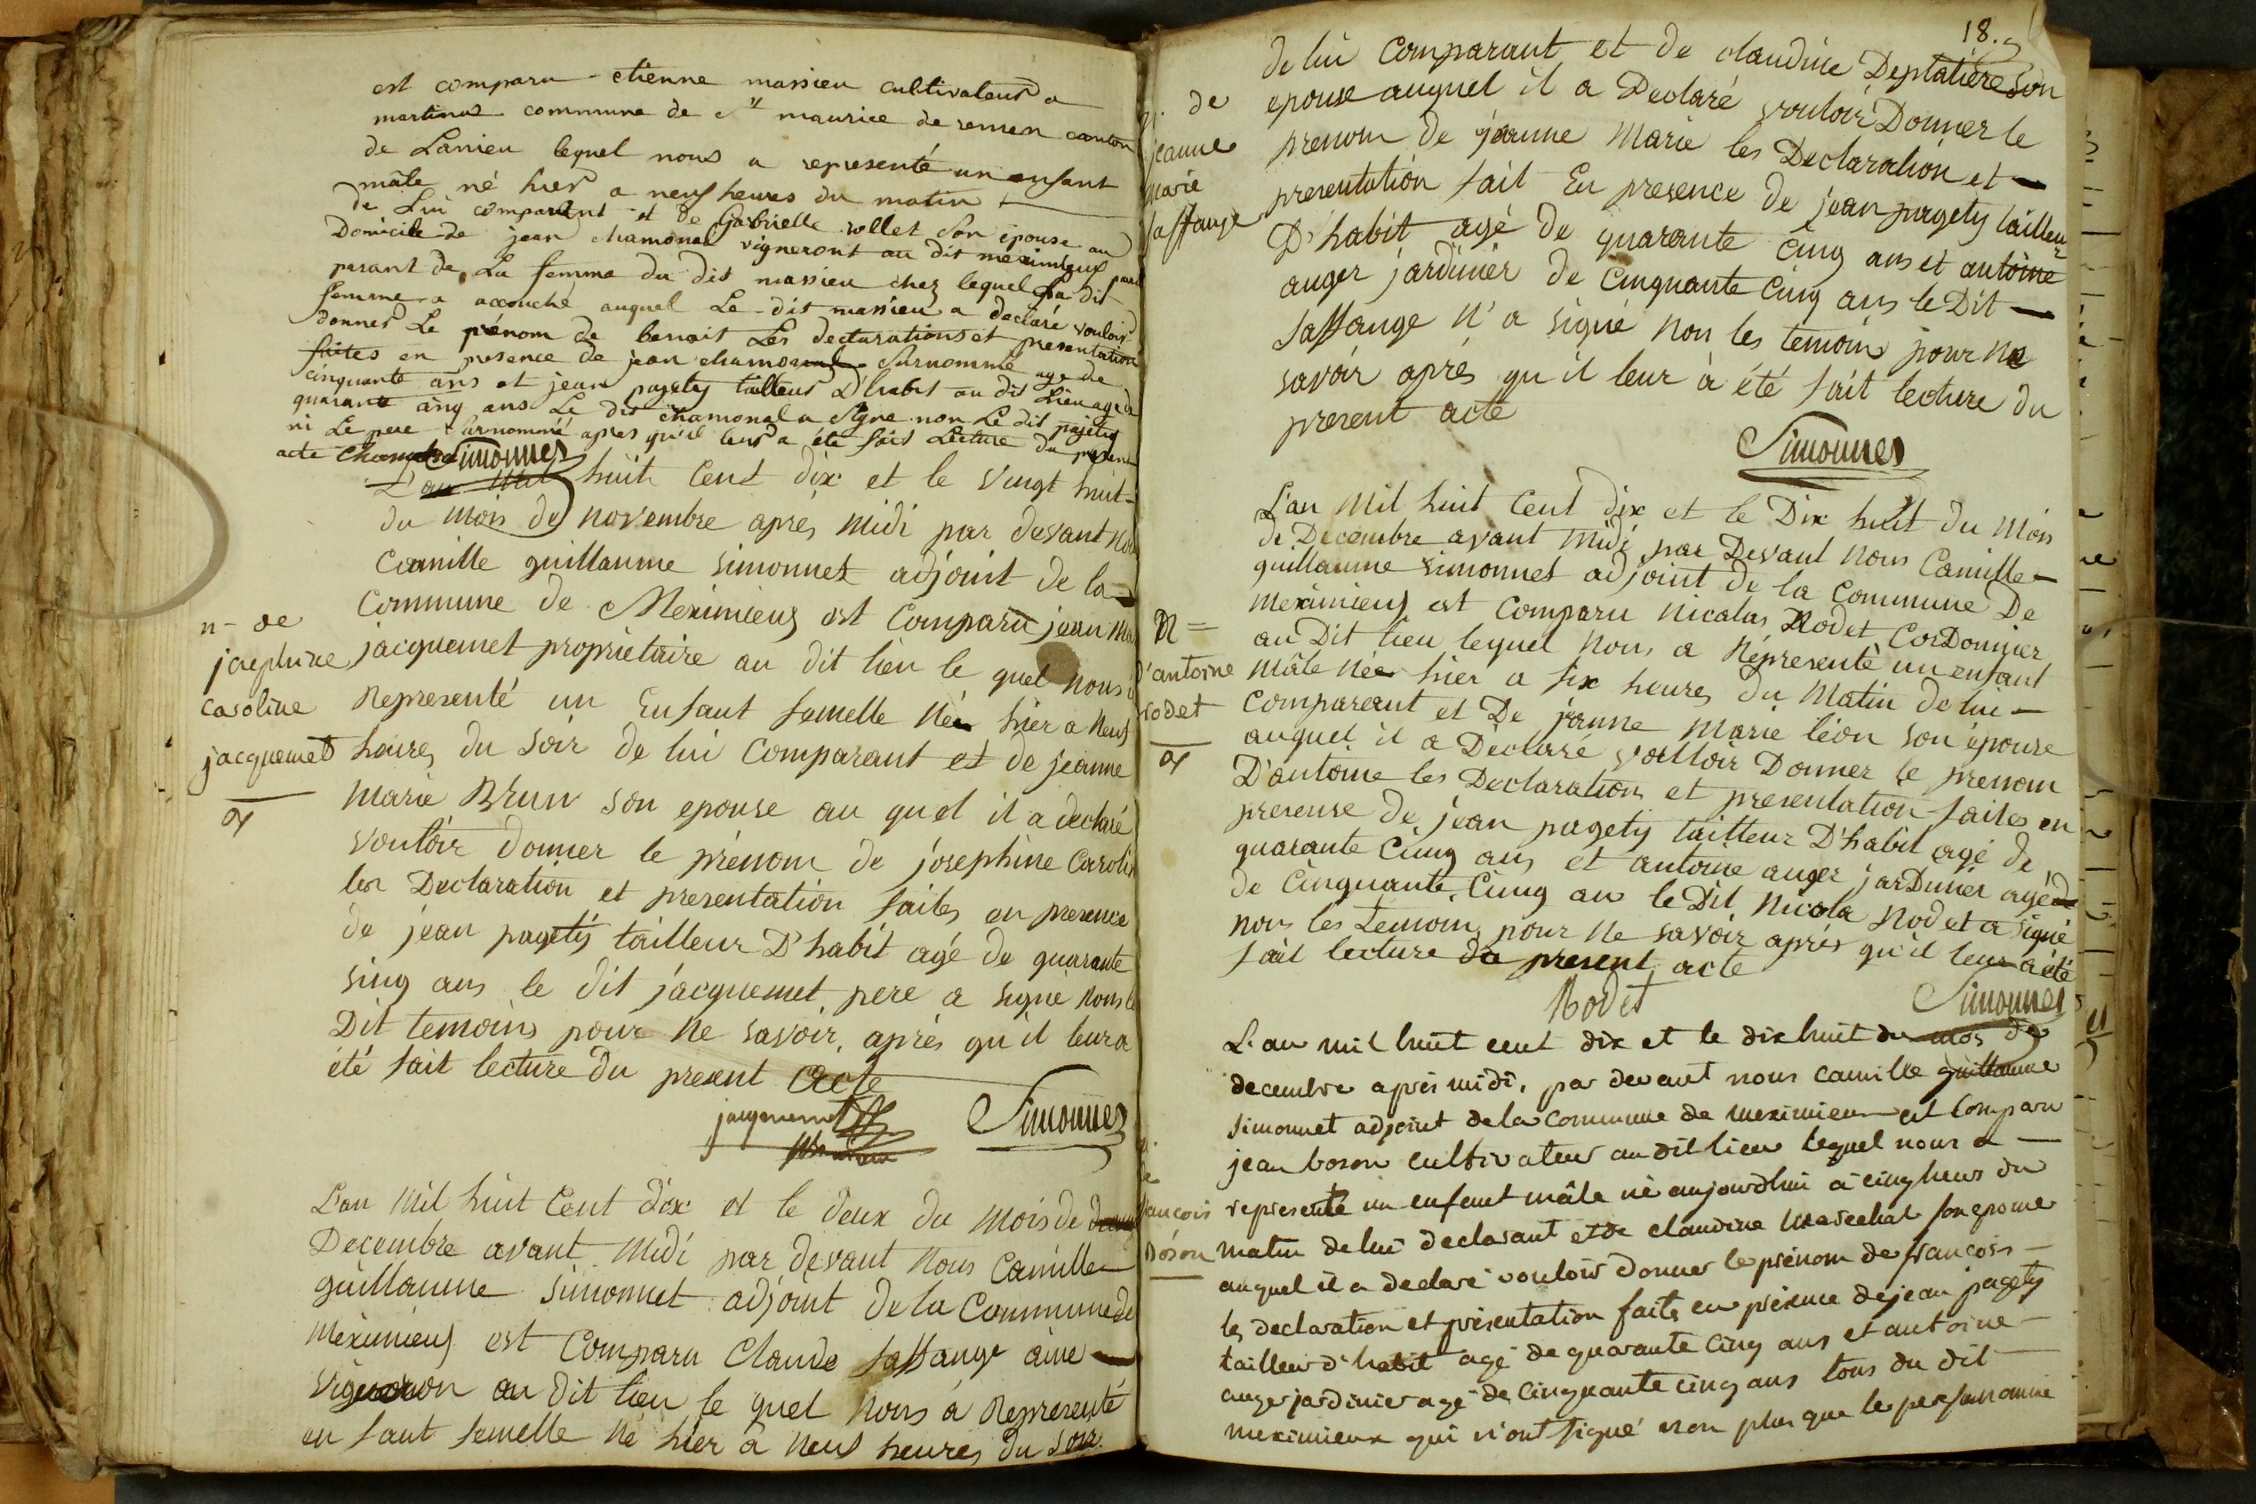 est comparu etienne massieu cultivateur a
martinas commune de St maurice de remen canton
de Lanieu lequel nous a representé un enfant
mâle né hier a neuf heures du matin
de Lui comparent et de Gabrielle rollet son epouse au
Domicile de jean chamonal vigneront au dit meximieux
parant de La femme du dit massieu chez lequel La dit
femme a accouché auquel Le dit massieu a declaré vouloir
donner Le prénom de benoit Les declarations et presentation
faites en presence de jean chamonal surnommé age de
cinquante ans et jean pagety tailleur D'habit au dit Lieu age de
quarante cinq ans Le dit chamonal a signe non Le dit pagety
ni Le pere surnommé apres qu'il leur a été fait Lecture du present
acte Simonnet
L'an mil huit Cent dix et le vingt huit
du mois de novembre après midi par devant nous
Camille guillaume simonnet adjoint de la
Commune de Meximieux est Comparu jean
n- de
josephine
caroline
jacquemet
jacquemet propriétaire au dit lieu le quel nous a
Representé un Enfant femelle Née hier a neuf
heures du soir de lui Comparant et de jeanne
Marie Brun son epouse au quel il a declaré
vouloir donner le prénom de josephine Caroline
les Declaration et presentation faites en presence
de jean pagety tailleur D'habit agé de quarante
sinq ans le dit jacquemet pere a signé nons le
Dit temoins pour ne savoir, après qu'il leur a
été fait lecture du present acte
jacquemet Simonnet
L'an Mil huit Cent dix et le deux du Mois de
Decembre avant Midi par devant Nous Camille
guillaume Simonnet adjoint de la Commune de
Meximieux est Comparu Claude saffange aine
vigneron au dit lieu le quel Nous a Representé
en fant femelle Né hier a Neuf heures du soir
18.
de lui Comparant et de claudine Deplatiere son
de
jeanne
marie
saffange
epouse auquel il a Declaré vouloir Donner le
prenom de jeanne Marie les Declaration et
presentation fait En presence de jean pagety tailleur
D'habit agé de quarante Cinq ans et antoine
auger jardinier de Cinquante Cinq ans le Dit
saffange N'a signé Non les temoins pour Ne
savoir après qu'il leur à été fait lecture du
present acte
Simonnet
L'an Mil huit Cent dix et le Dix huit du Mois
de Decembre avant Midi par Devant Nous Camille
guillaume Simonnet adjoint de la Commune De
N =
d'antoine
rodet
Meximieux est Comparu Nicolas Rodet CorDonnier
au Dit lieu lequel Nous a Representé un enfant
Mâle Née hier a six heures du Matin de lui
Comparant et De jeanne Marie léon son epouse
auquel il a Declaré vouloir Donner le prenom
D'antoine les Declaration et presentation faites en
presense de jean pagety tailleur D'habit agé de
quarante Cinq ans et antoine auger jarDinier agé de
de Cinquante Cinq an le Dit Nicola Rodet a signé
nons les Temoins pour Ne savoir après qu'il leur a été
fait lecture du present acte
Rodet Simonnet
L'an mil huit cent dix et le dix huit du mois de
decembre après midi, par devant nous camille guillaume
simonnet adjoint de la commune de meximieux est Comparu
de
francois
Boson
jean boson cultivateur au dit lieu lequel nous a
representé un enfant mâle né aujourdhui à cinq heurs du
matin de lui declarant et de claudine Marechal son epouse
auquel il a declaré vouloir donner le prénom de francois
les declaration et présentation faites en présence de jean pagety
tailleur d'habit agé de quarante cinq ans et antoine
auger jardinier agé de cinquante cinq ans tous du dit
meximieux qui n'ont signé non plus que le per surnommé